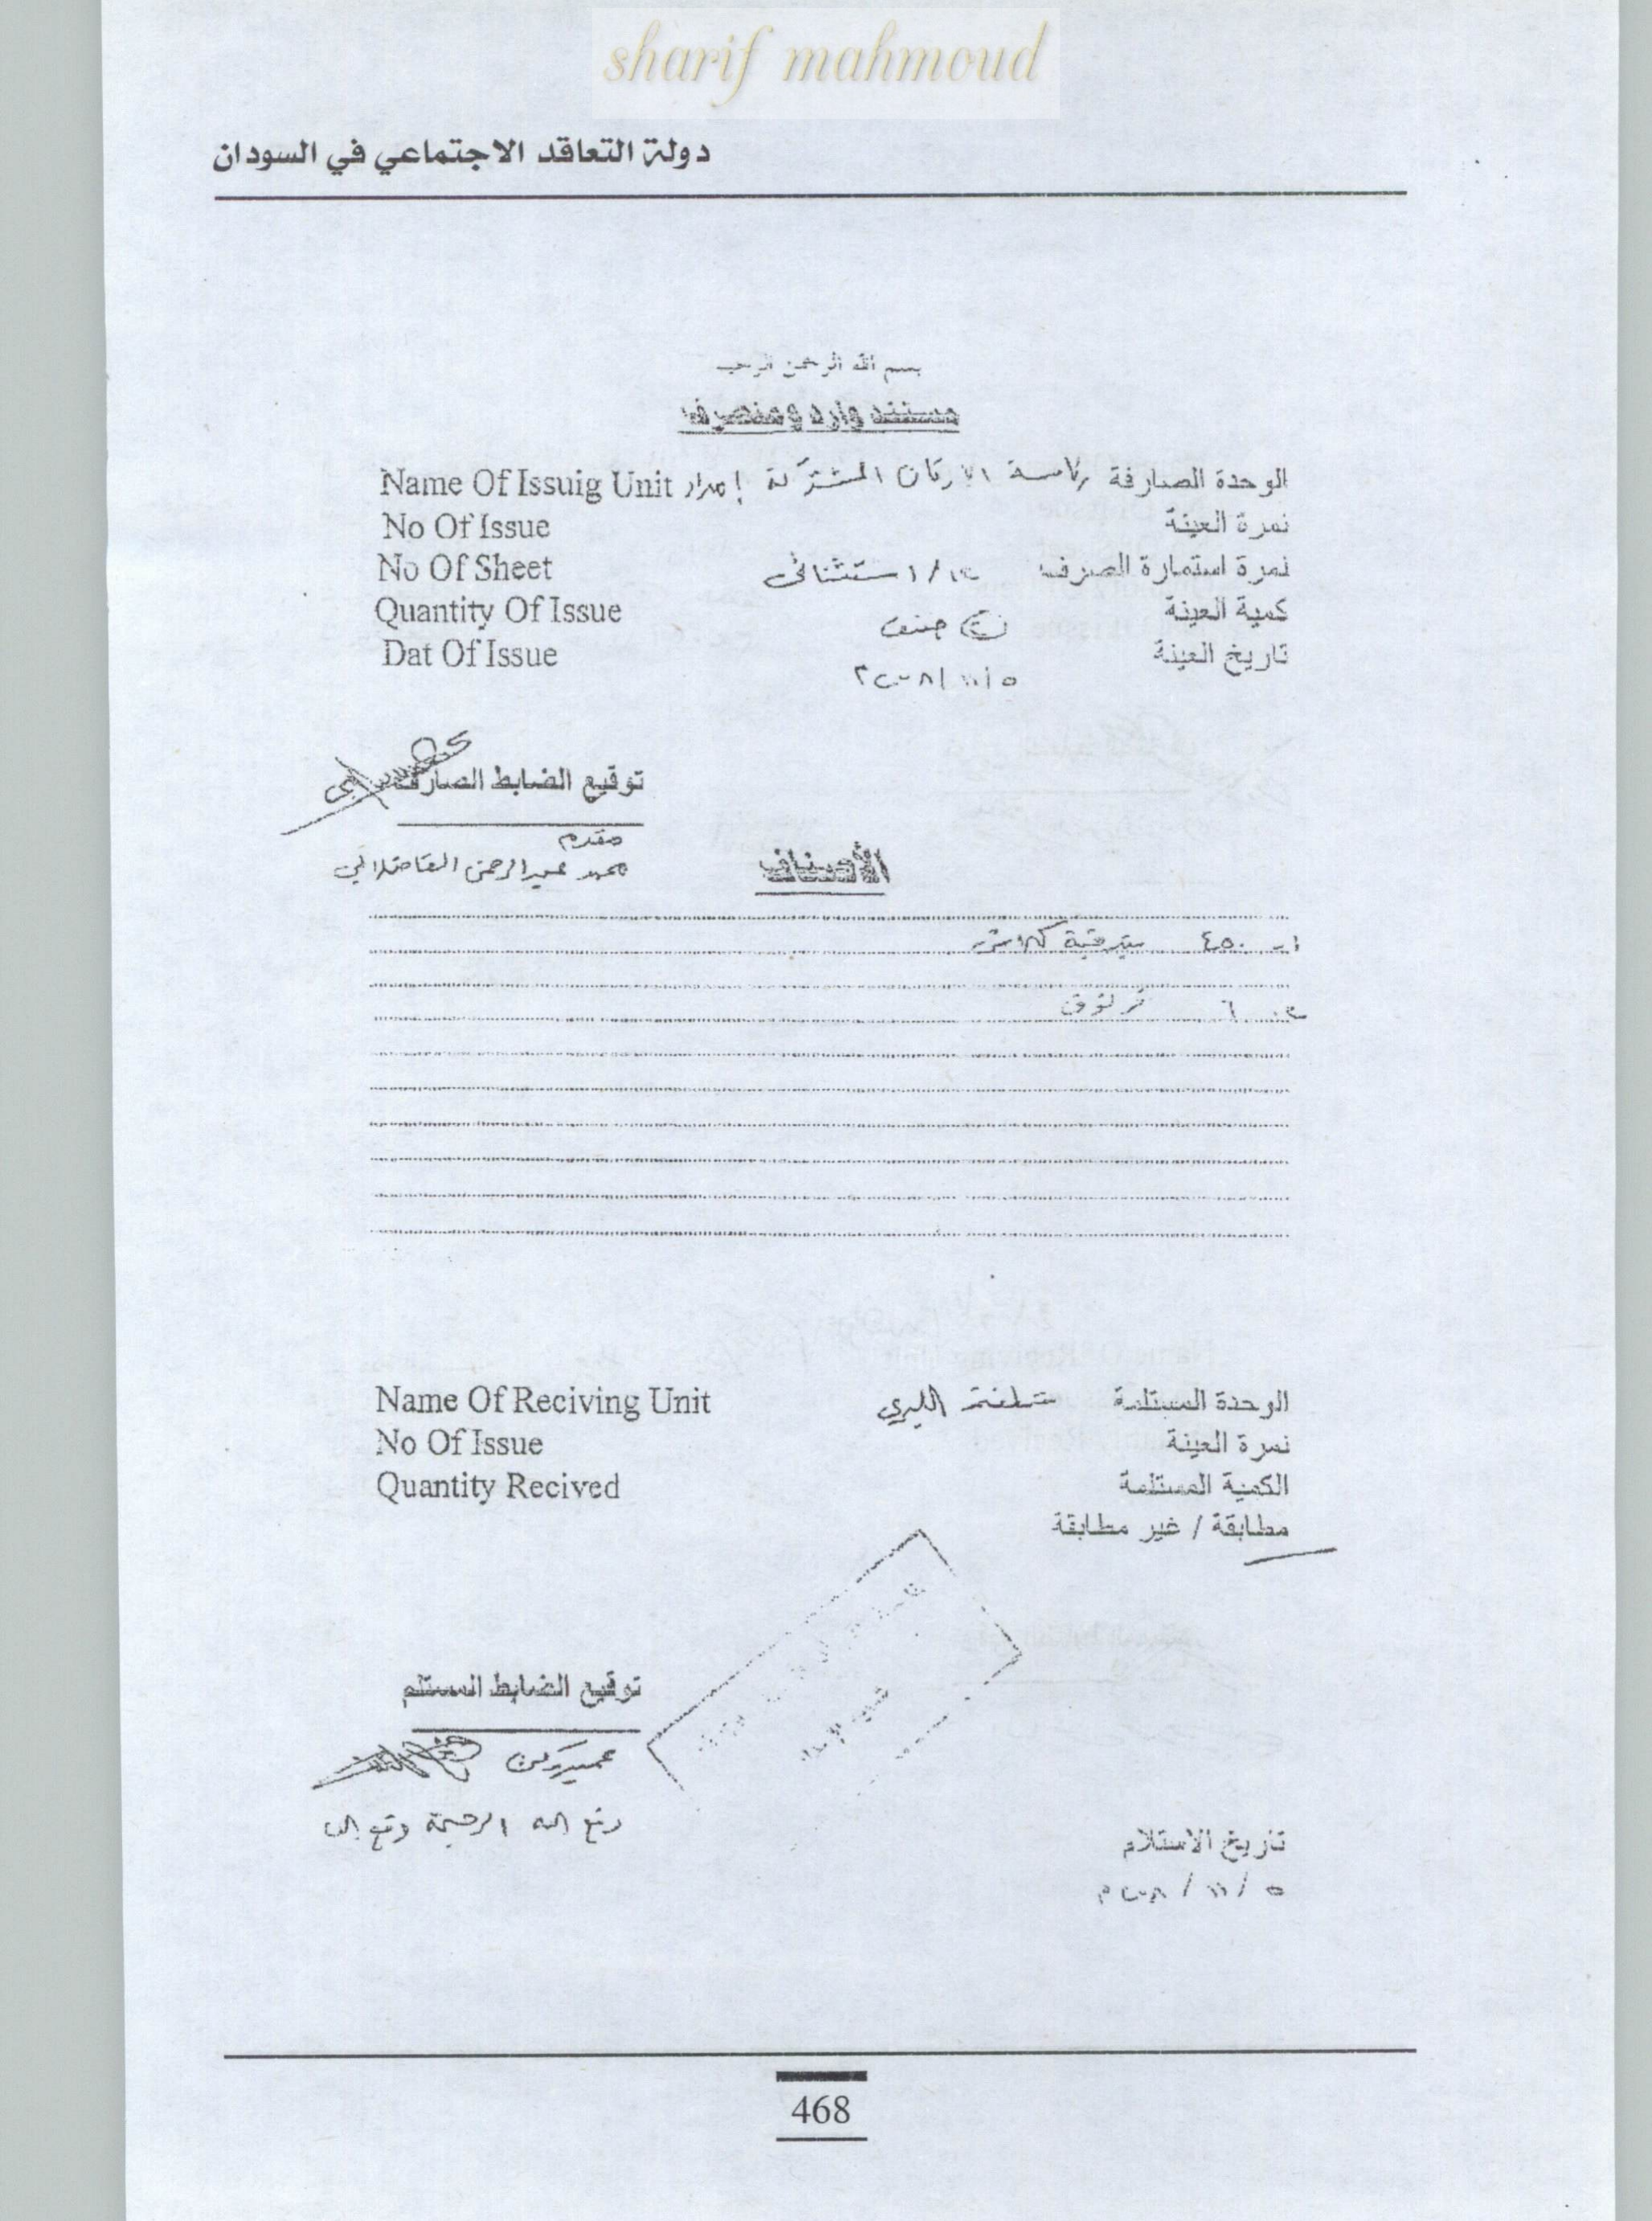 sharif mahmoud
دولة التعاقد الاجتماعي في السودان
بسم الله الرحمن الرحيم
مستند وارد ومنصرف
الوحدة الصارفة رئاسة الاركان المشتركة إمداد Name Of Issuig Unit
نمرة العينة No Of Issue
نمرة استمارة الصرف استثنائى No Of Sheet
كمية العينة صنف Quantity Of Issue
تاريخ العينة Dat Of Issue
٥/١١/٢٠٠٨
توقيع الضابط الصارف
مقدم
محمد عبدالرحمن
الأصناف
١- ٤٥٠ بندقية كلاش
٢- ٦ قرنوف
الوحدة المستلمة الليري Name Of Reciving Unit
نمرة العينة No Of Issue
الكمية المستلمة Quantity Recived
مطابقة / غير مطابقة
توقيع الضابط المستلم
عميد ركن
تاريخ الاستلام
٥/١١/٢٠٠٨م
468